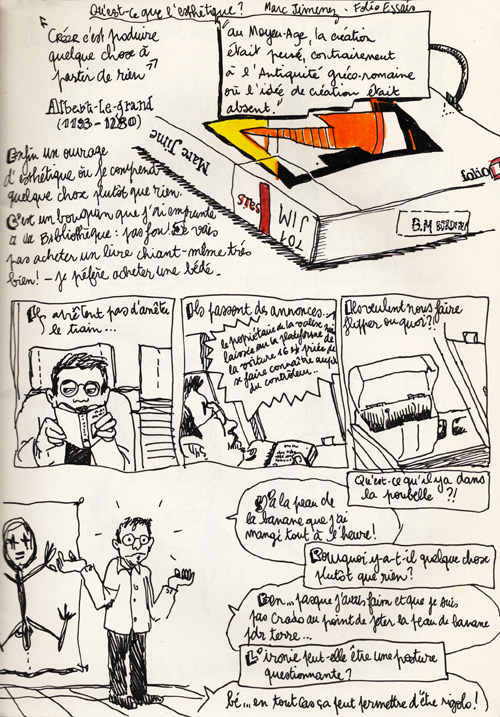 Qu'est-ce que l'esthétique ? Marc Jimenez - Folio Essais
"Créer c'est produire
quelque chose à
partir de rien"
Albert-le-grand
(1193-1280)
"au Moyen-Age, la création
était pensé, contrairement
à l'Antiquité gréco-romaine
où l'idée de création était
absent."
Enfin un ouvrage
d'esthétique où je comprend
quelque chose plutôt que rien.
C'est un bouquin que j'ai emprunté
à la Bibliothèque : pas fou! Je vais
pas acheter un livre chiant-même très
bien! - je préfère acheter une bédé.
Marc Jime
folio
701
JIM
B.M BORDEAUX
Ils arrêtent pas d'arrêter
le train...
Ils passent des annonces..
le propriétaire de la valise
laissée sur la plateforme de
la voiture 16 est priée de
se faire connaître auprès
du contrôleur...
Ils veulent nous faire
flipper ou quoi?!
Qu'est-ce qu'il y a dans
la poubelle ?!
Y'a la peau de
la banane que j'ai
mangé tout à l'heure!
Pourquoi y-a-t-il quelque chose
plutôt que rien?
Ben... pasque j'avais faim et que je suis
pas crado au point de jeter la peau de banane
par terre...
L'ironie peut-elle être une posture
questionnante?
Bé... en tout cas ça peut permettre d'être rigolo!